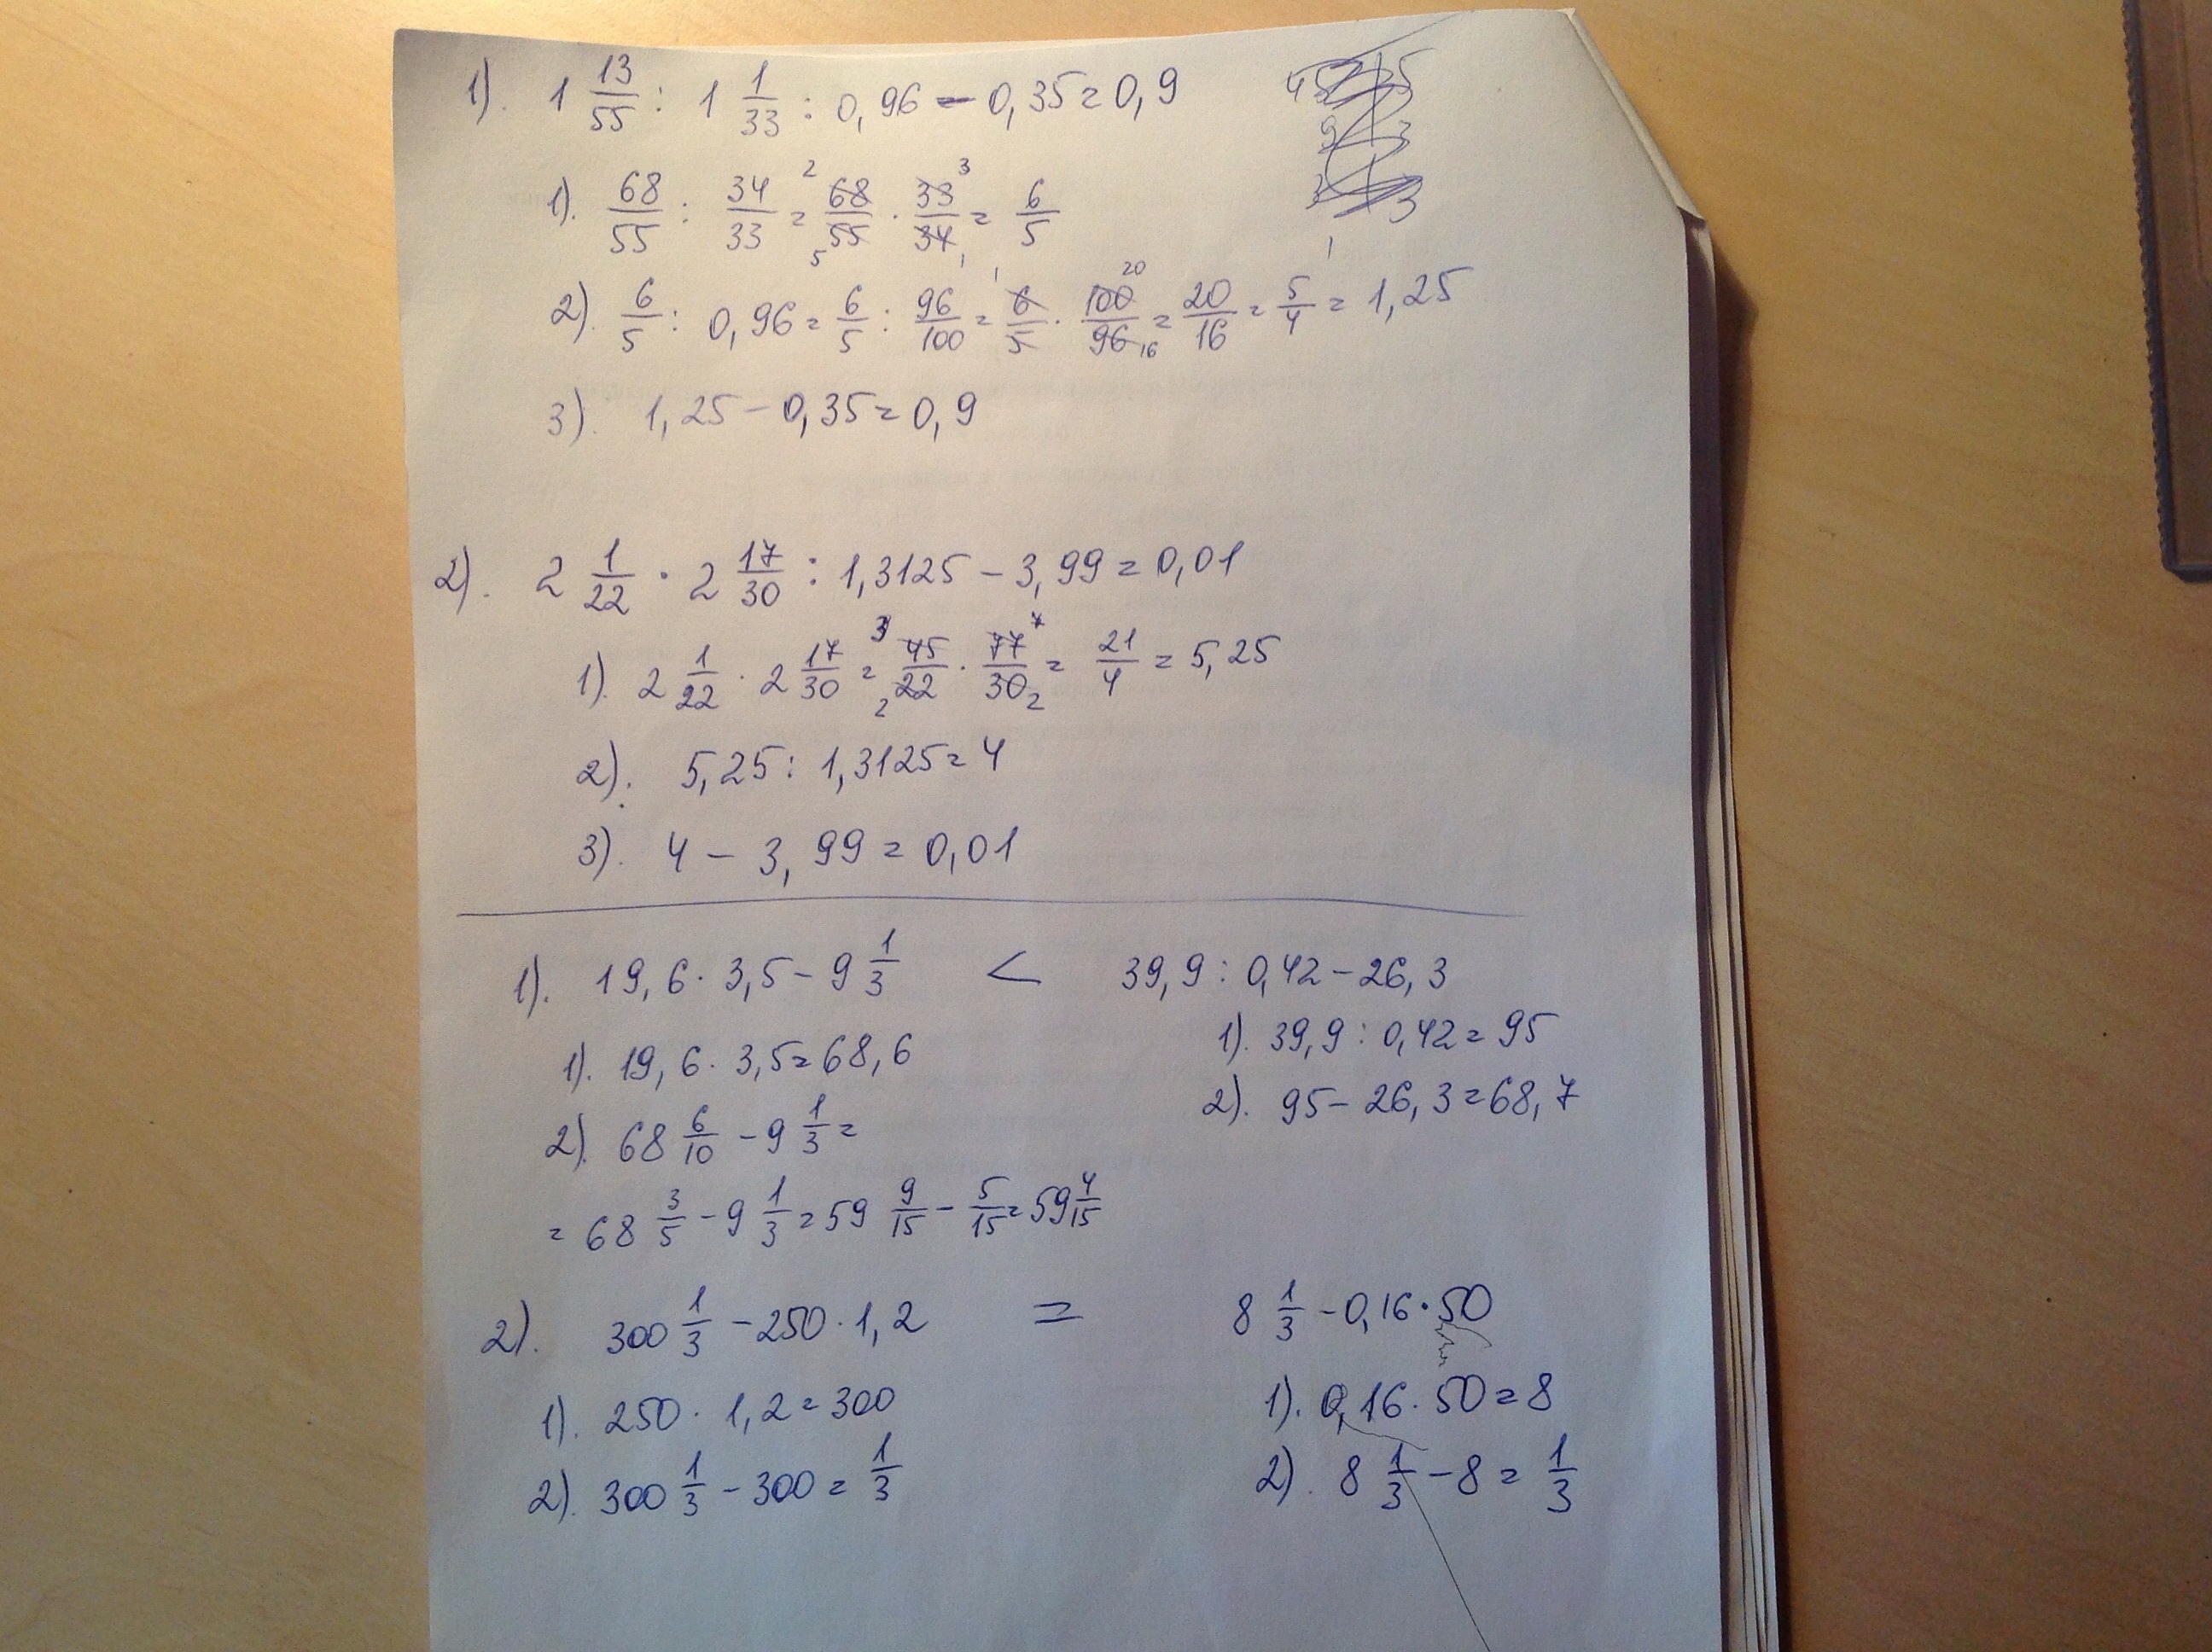 1). 1 13/55 : 1 1/33 : 0,96 - 0,35 = 0,9
1). 68/55 : 34/33 = 68/55 · 33/34 = 6/5
2). 6/5 : 0,96 = 6/5 : 96/100 = 6/5 · 100/96 = 20/16 = 5/4 = 1,25
3). 1,25 - 0,35 = 0,9
2). 2 1/22 · 2 17/30 : 1,3125 - 3,99 = 0,01
1). 2 1/22 · 2 17/30 = 45/22 · 77/30 = 21/4 = 5,25
2). 5,25 : 1,3125 = 4
3). 4 - 3,99 = 0,01
1). 19,6 · 3,5 - 9 1/3 < 39,9 : 0,42 - 26,3
1). 19,6 · 3,5 = 68,6
1). 39,9 : 0,42 = 95
2). 68 6/10 - 9 1/3 =
2). 95 - 26,3 = 68,7
= 68 3/5 - 9 1/3 = 59 9/15 - 5/15 = 59 4/15
2). 300 1/3 - 250 · 1,2 = 8 1/3 - 0,16 · 50
1). 250 · 1,2 = 300
1). 0,16 · 50 = 8
2). 300 1/3 - 300 = 1/3
2). 8 1/3 - 8 = 1/3